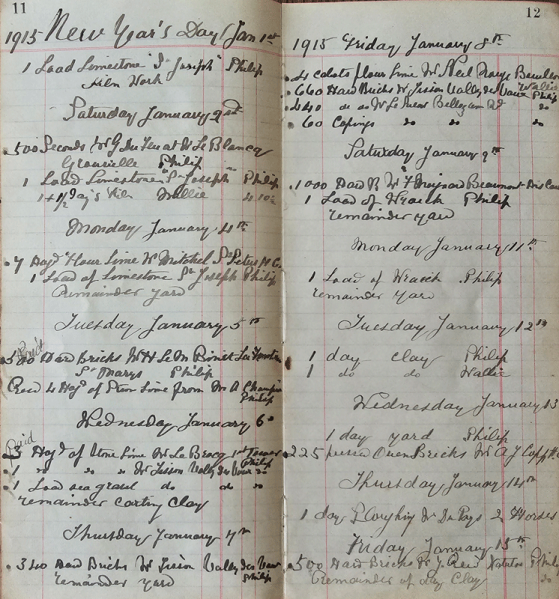 11
1915 New Year's Day Jan 1st
1 Load Limestone St Joseph Philip
Kiln Work
Saturday January 2nd
500 Seconds Mr G Du Feu at Le Blancq
Grouville Philip
1 Load Limestone St Joseph Philip
1 + 1/2 day's Kiln Wallie
Monday January 4th
7 Hogd Flour Lime Mr Mitchel St Peters
1 Load of Limestone St Joseph Philip
Remainder yard
Tuesday January 5th
Paid
500 Hard Bricks Mr H Le M
St Marys Philip
Recd 4 Hogd of Stone Lime from Mr A Champion
Philip
Wednesday January 6
Paid
3 Hogd of Stone Lime Mr Le Brocq 1st Tower
1 " " " Mr Vally des Vaux Philip
1 Load sea gravel do do
remainder carting clay
Thursday January 7th
340 Hard Bricks Mr Vally des Vaux
remainder yard Philip
12
1915 Friday January 8th
4 cabots flour Lime Mr Neel
660 Hard Bricks Mr Vally des Vaux Philip
Wallie
440 do do Mr Le Bellozanne Rd
60 Copings do do
Saturday January 9th
1000 Hard B Mr Beaumont
1 Load of Wraich Philip
remainder yard
Monday January 11th
1 Load of Wraich Philip
remainder yard
Tuesday January 12th
1 day clay Philip
1 do do Wallie
Wednesday January 13
1 day yard Philip
225 Oven Bricks Mr A J
Thursday January 14th
1 day Ploughing Mr Du Pays 2 Horses
Friday January 15th
500 Hard Bricks Mr J Philip
Remainder of day Clay